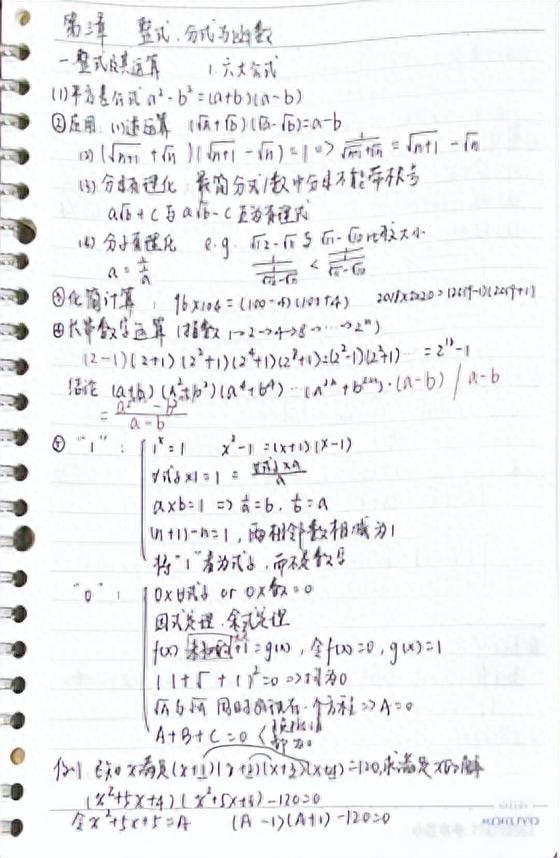 第三章 整式、分式与函数
一.整式及其运算 1.六大公式
(1)平方差公式 a²-b²=(a+b)(a-b)
②应用: (1)速运算 (√a+√b)(√a-√b)=a-b
(2) (√n+1 + √n)(√n+1 - √n)=1 => 1/(√n+1+√n) = √n+1 - √n
(3) 分母有理化: 最简分式/数中分母不能带根号
a√b+c 与 a√b-c 互为有理式
(4) 分子有理化 e.g. √12-√11 与 √11-√10 比较大小
a= <
③化简计算: 96×104=(100-4)(100+4) 2018×2020=(2019-1)(2019+1)
④长串数字运算 (指数 1→2→4→8→…→2ⁿ)
(2-1)(2+1)(2²+1)(2⁴+1)(2⁸+1)=(2²-1)(2²+1) =2¹⁶-1
结论 (a+b)(a²+b²)(a⁴+b⁴)…·(a-b) / a-b
= a-b
⑤ "1": 1ˣ=1 x²-1=(x+1)(x-1)
式子×1=1=
a×b=1 => 1/a=b, 1/b=a
(n+1)-n=1, 两相邻数相减为1
将"1"看为式子,而不是数字
"0": 0×式子 or 0×数=0
因式定理.余式定理
f(x) +1=g(x), 令f(x)=0, g(x)=1
| |+√ +( )²=0 => 均为0
同时出现在一个方程 => A=0
A+B+C=0 < 都为0
例1 已知x满足(x+1)(x+2)(x+3)(x+4)=120,求满足x的解
(x²+5x+4)(x²+5x+6)-120=0
令x²+5x+5=A (A-1)(A+1)-120=0